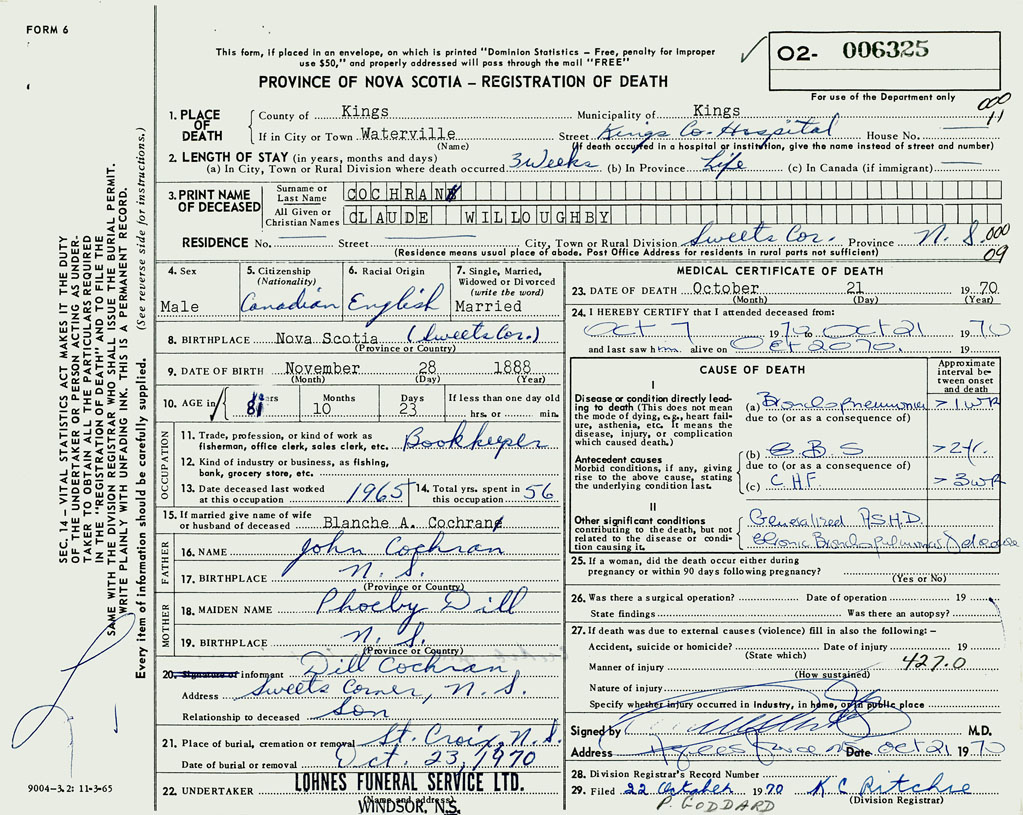 FORM 6
This form, if placed in an envelope, on which is printed "Dominion Statistics – Free, penalty for improper
use $50," and properly addressed will pass through the mail "FREE"
PROVINCE OF NOVA SCOTIA – REGISTRATION OF DEATH
02- 006325
For use of the Department only
000
11
1. PLACE OF DEATH
County of Kings Municipality of Kings
If in City or Town Waterville Street Kings Co. Hospital House No.
(Name) (If death occurred in a hospital or institution, give the name instead of street and number)
2. LENGTH OF STAY (in years, months and days)
(a) In City, Town or Rural Division where death occurred 3 Weeks (b) In Province Life (c) In Canada (if immigrant)
3. PRINT NAME OF DECEASED
Surname or Last Name COCHRAN
All Given or Christian Names CLAUDE WILLOUGHBY
RESIDENCE No. Street City, Town or Rural Division Sweets Cor. Province N.S. 000
(Residence means usual place of abode. Post Office Address for residents in rural parts not sufficient) 09
4. Sex
Male
5. Citizenship
(Nationality)
Canadian
6. Racial Origin
English
7. Single, Married,
Widowed or Divorced
(write the word)
Married
8. BIRTHPLACE Nova Scotia (Sweets Cor.)
(Province or Country)
9. DATE OF BIRTH November 28 1888
(Month) (Day) (Year)
10. AGE in Years Months Days If less than one day old
81 10 23 hrs. or min.
OCCUPATION
11. Trade, profession, or kind of work as
fisherman, office clerk, sales clerk, etc. Bookkeeper
12. Kind of industry or business, as fishing,
bank, grocery store, etc.
13. Date deceased last worked
at this occupation 1965
14. Total yrs. spent in
this occupation 56
15. If married give name of wife
or husband of deceased Blanche A. Cochran
FATHER
16. NAME John Cochran
17. BIRTHPLACE N.S.
(Province or Country)
MOTHER
18. MAIDEN NAME Phoeby Dill
19. BIRTHPLACE N.S.
(Province or Country)
20. Signature of informant Dill Cochran
Address Sweets Corner, N.S.
Relationship to deceased Son
21. Place of burial, cremation or removal St. Croix, N.S.
Date of burial or removal Oct. 23, 1970
22. UNDERTAKER LOHNES FUNERAL SERVICE LTD.
(Name and address)
WINDSOR, N.S.
MEDICAL CERTIFICATE OF DEATH
23. DATE OF DEATH October 21 1970
(Month) (Day) (Year)
24. I HEREBY CERTIFY that I attended deceased from:
Oct 7 1970 to Oct 21 1970
and last saw him alive on Oct 20 70. 19
CAUSE OF DEATH
Approximate interval between onset and death
I
Disease or condition directly leading to death (This does not mean the mode of dying, e.g., heart failure, asthenia, etc. It means the disease, injury, or complication which caused death.)
(a) Bronchopneumonia > 1 wk
due to (or as a consequence of)
Antecedent causes
Morbid conditions, if any, giving rise to the above cause, stating the underlying condition last.
(b) C.B.S > 2 yr.
due to (or as a consequence of)
(c) CHF > 3 wk
II
Other significant conditions
contributing to the death, but not related to the disease or condition causing it.
Generalized A.S.H.D.
Chronic Bronchopulmonary disease
25. If a woman, did the death occur either during
pregnancy or within 90 days following pregnancy?
(Yes or No)
26. Was there a surgical operation? Date of operation 19
State findings Was there an autopsy?
27. If death was due to external causes (violence) fill in also the following: –
Accident, suicide or homicide? Date of injury 19
(State which)
Manner of injury 427.0
(How sustained)
Nature of injury
Specify whether injury occurred in industry, in home, or in public place
Signed by M.D.
Address Date Oct 21 1970
28. Division Registrar's Record Number
29. Filed 22 October 1970 K C Ritchie
(Division Registrar)
P. GODDARD
SEC. 14 – VITAL STATISTICS ACT MAKES IT THE DUTY
OF THE UNDERTAKER OR PERSON ACTING AS UNDER-
TAKER TO OBTAIN ALL THE PARTICULARS REQUIRED
IN THE "REGISTRATION OF DEATH" AND TO FILE THE
SAME WITH THE DIVISION REGISTRAR WHO SHALL ISSUE THE BURIAL PERMIT.
WRITE PLAINLY WITH UNFADING INK. THIS IS A PERMANENT RECORD.
Every item of information should be carefully supplied. (See reverse side for instructions.)
9004-3.2: 11-3-65